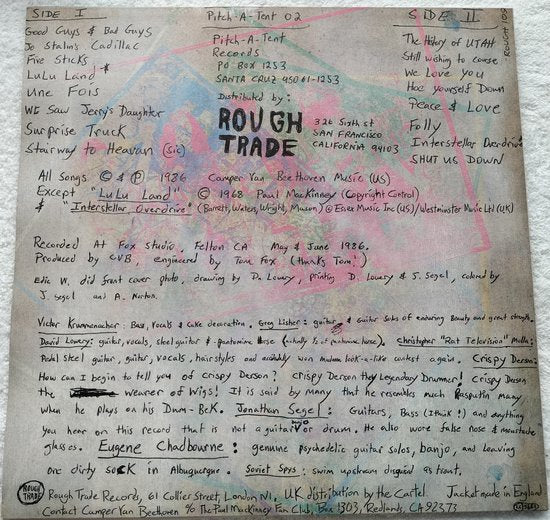 SIDE I
Good Guys & Bad Guys
Jo Stalin's Cadillac
Five Sticks
LuLu Land *
Une Fois
We Saw Jerry's Daughter
Surprise Truck
Stairway to Heavan (sic)
Pitch-A-Tent 02
Pitch-A-Tent
Records
PO BOX 1253
SANTA CRUZ 95061-1253
Distributed by:
ROUGH
TRADE
326 Sixth st
SAN FRANCISCO
CALIFORNIA 94103
SIDE II
The History of UTAH
Still wishing to course
We Love you
Hoe yourself Down
Peace & Love
Folly
Interstellar Overdrive
SHUT US DOWN
All Songs © & ℗ 1986 Camper Van Beethoven Music (US)
Except "LuLu Land" © 1968 Paul MacKinney (Copyright Control)
& "Interstellar Overdrive" (Barrett, Waters, Wright, Mason) @ Essex Music Inc (US)/Westminster Music Ltd (UK)
Recorded At Fox Studio, Felton CA May & June 1986.
Produced by CVB, engineered by Tom Fox (thanks Tom!)
Edie W. did front cover photo, drawing by D. Lowery, printing D. Lowery & J. Segel, colored by
J. Segel and A. Norton.
Victor Krummenacher: Bass, Vocals & Cake decoration. Greg Lisher: guitar & Guitar Solos of enduring Beauty and great strength.
David Lowery: guitar, vocals, steel guitar & pantomime horse (actually ½ of pantomime horse). Christopher "Rat Television" Molla:
Pedal Steel guitar, guitar, vocals, hairstyles and won madonna look-a-like contest again. Crispy Derson:
How can I begin to tell you of crispy Derson? Crispy Derson they Legendary Drummer! Crispy Derson
the wearer of Wigs! It is said by many that he resembles much Rasputin many
when he plays on his Drum-Bek. Jonathan Segel: Guitars, Bass (I think!) and anything
you hear on this record that is not a guitar or drum. He also wore false nose & moustache
glasses. Eugene Chadbourne: genuine psychedelic guitar solos, banjo, and leaving
one dirty sock in Albuquerque. Soviet Spys: swim upstream disguised as trout.
ROUGH
TRADE
Rough Trade Records, 61 Collier Street, London N1, UK distribution by the Cartel. Jacket made in England
Contact Camper Van Beethoven % The Paul MacKinney Fan Club, Box 1303, Redlands, CA 92373